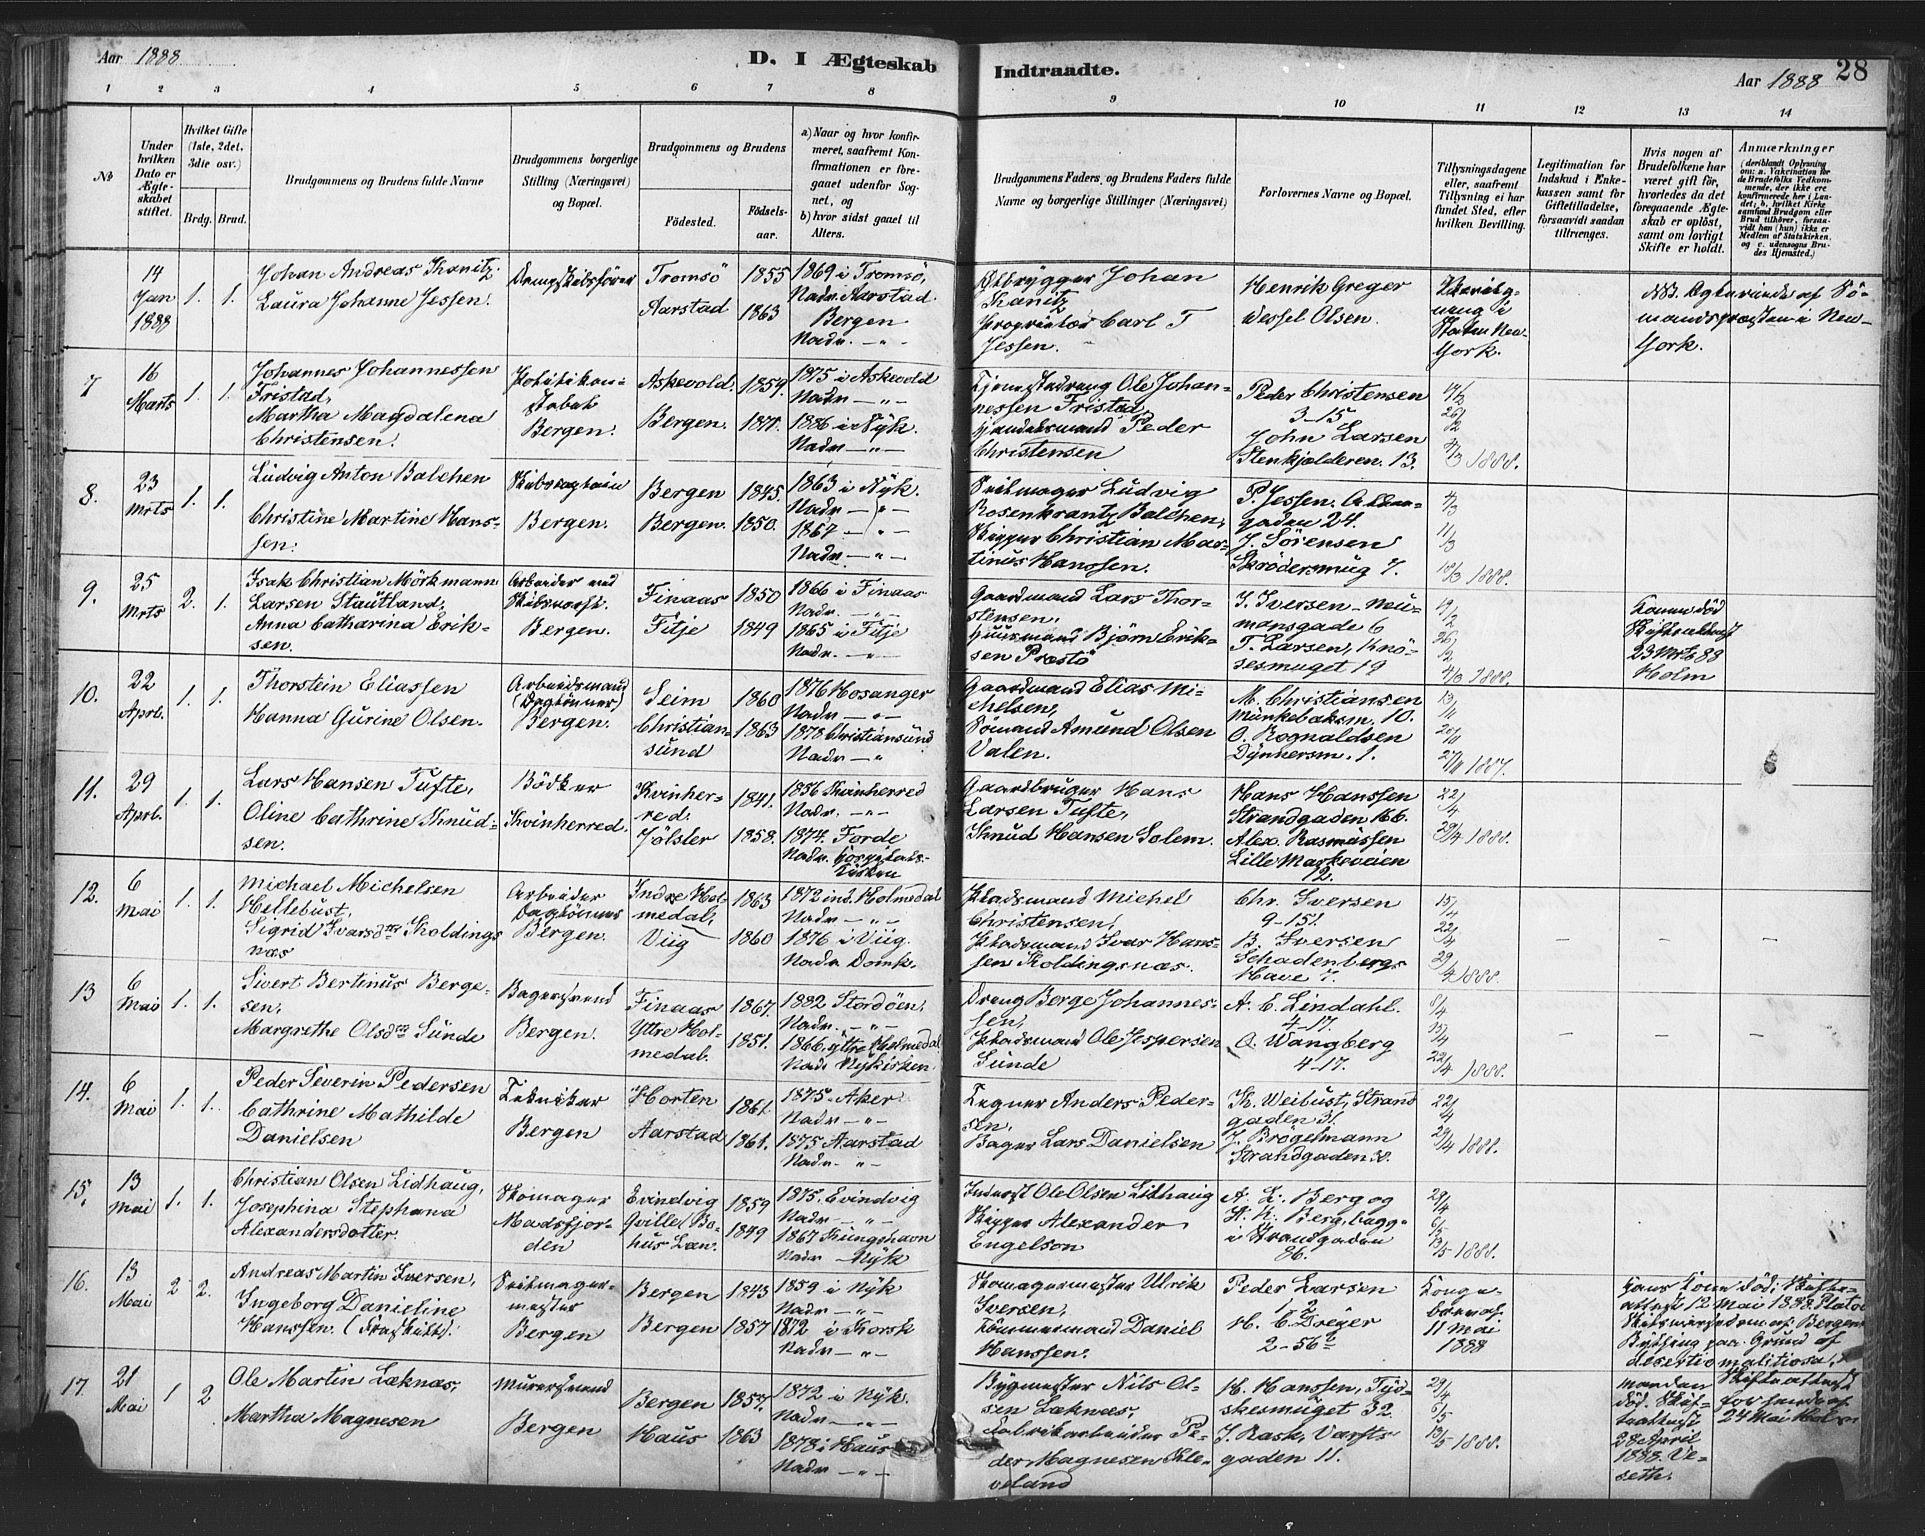 Aar 1888
D. I Ægteskab Indtraadte.
Aar 1888
28
1 2 3 4 5 6 7 8 9 10 11 12 13 14
No
Under hvilken Dato er Ægteskabet stiftet.
Hvilket Gifte (1ste, 2det, 3die osv.)
Brdg. Brud.
Brudgommens og Brudens fulde Navne
Brudgommens borgerlige Stilling (Næringsvei) og Bopæl.
Brudgommens og Brudens
Födested.
Födselsaar.
a) Naar og hvor konfirmeret, saafremt Konfirmationen er foregaaet udenfor Sognet, og
b) hvor sidst gaaet til Alters.
Brudgommens Faders og Brudens Faders fulde Navne og borgerlige Stillinger (Næringsvei)
Forlovernes Navne og Bopæl.
Tillysningsdagene eller, saafremt Tillysning ei har fundet Sted, efter hvilken Bevilling.
Legitimation for Indskud i Enkekassen samt for Giftetilladelse, forsaavidt saadan tiltrænges.
Hvis nogen af Brudefolkene har været gift för, hvorledes da det foregaaende Ægteskab er oplöst, samt om lovligt Skifte er holdt.
Anmærkninger
(deriblandt Oplysning om: a. Vakcination for de Brudefolks Vedkommende, der ikke ere konfirmerede her i Landet; b. hvilket Kirkesamfund Brudgom eller Brud tilhörer, forsaavidt han (hun) ikke er Medlem af Statskirken, og c. udensogns Brudes Hjemsted.)
14 Jan 1888 1. 1.
Johan Andreas Kanitz
Laura Johanne Jessen.
Dampskibsfører
Tromsö 1855
Aarstad 1863
1869 i Tromsö,
Nadv. Aarstad.
Bergen
Nadv. - " -
Ölbrygger Johan
Kanitz
Proprietær Carl T
Jessen.
Henrik Greger
Wessel Olsen.
i
Staten New
York.
NB. Egteviede af Sö-
mandspresten i New-
York.
7 16 Marts 1. 1.
Johannes Johannessen
Tristad,
Martha Magdalena
Christensen.
Politikon-
stabel
Bergen.
Askevold. 1859.
Bergen.
1875 i Askevold
Nadv. - " -
1886 i Nyk.
Nadv. - " -
Tjenestedreng Ole Johan-
nessen Tristad,
Handelsmand Peder
Christensen
Peder Christensen
3-15
John Larsen
Stenkjælderen. 13.
26/2
4/3 1888.
8. 23 Mrts 1. 1.
Ludvig Anton Balchen
Christine Martine Hans-
sen.
Skibscaptain
Bergen.
Bergen 1845.
Bergen. 1850.
1863 i Nyk.
Nadv. - " -
1867 - " -
Nadv. - " -
Seilmager Ludvig
Rosenkrantz Balchen,
Skipper Christian Mar-
tinus Hanssen.
P. Jessen.
gaden 24.
J. Sörensen
Skrödersmug 7.
4/3
11/3
18/3 1888.
9. 25 Mrts 2. 1.
Isak Christian Mörkmann
Larsen Stautland,
Anna Catharina Erik-
sen.
Arbeider ved
Skibsverft.
Bergen.
Finaas 1850
Fitje 1849
1866 i Finaas
Nadv. - " -
1865 i Fitje
Nadv. - " -
Gaardmand Lars Thor-
stensen,
Huusmand Björn Erik-
sen Præstö
J. Iversen - Neu-
mansgade 6
T. Larsen, Knö-
sesmuget 19
19/2
26/2
4/3 1888.
Konen död
Skifteattest
23 Mrts 88
Holm
10. 22 Aprl. 1. 1.
Thorstein Eliassen
Hanna Gurine Olsen.
Arbeidsmand
(Daglönner)
Bergen.
Seim 1860
Christian-
sund 1863
1876 Hosanger
Nadv. - " -
1878 Christiansund
Nadv. - "
Gaardmand Elias Mi-
chelsen,
Sömand Amund Olsen
Valen.
M. Christiansen
Munkebaksm. 10.
O. Rognaldsen
Dynnersm. 1.
13/11
20/11
27/11 1887.
11. 29 Aprl. 1. 1.
Lars Hansen Tufte,
Oline Cathrine Knud-
sen.
Bödker
Kvinherred.
Kvinher-
red. 1841.
Jölster 1858.
1856 Kvinherred
Nadv. - " -
1874. Förde
Nadv. Hospitals-
kirken
Gaardbruger Hans
Larsen Tufte,
Knud Hansen Solem.
Hans Hanssen
Strandgaden 166.
Alex. Rasmussen
Lille Markeveien
12.
22/4
29/4 1888.
12. 6 Mai 1. 1.
Michael Michelsen
Hellebust,
Sigrid Ivarsdtr Koldings
næs
Arbeider
Daglönner
Bergen.
Indre Hol-
medal, 1863
Viig 1860
1872 ind. Holmedal
Nadv. - " -
1876 i Viig.
Nadv. Domk.
Pladsmand Michel
Christensen,
Pladsmand Ivar Hans-
sen Koldingsnæs.
Chr. Iversen
9-151
B. Iversen
Schadenbergs
Have 7.
15/4
22/4
29/4 1888.
- - -
13 6 Mai 1. 1.
Sivert Bertinus Berge-
sen,
Margrethe Olsdtr Sunde
Bagersvend
Bergen.
Finaas 1867.
Yttre Hol-
medal. 1851.
1882 Stordöen,
Nadv. - " -
1866, yttre Holmedal
Nadv. Nykirken.
Dreng Berge Johannes-
sen,
Pladsmand Ole Jespersen
Sunde
A. E. Lindahl.
4-17.
O. Wangberg
4-17.
8/4
15/4
22/4 1888.
- - -
14. 6 Mai 1. 1.
Peder Severin Pedersen
Cathrine Mathilde
Danielsen
Tekniker
Bergen
Horten 1861.
Aarstad 1861.
1875 Aker
Nadv. - " -
1875 Aarstad
Nadv. " -
Tegner Anders Peder-
sen,
Bager Lars Danielsen
K. Weibust, Strand
gaden 31.
J. Brögelmann
Strandgaden 30.
22/4
29/4 1888.
15. 13 Mai 1. 1.
Christian Olsen Lidhaug,
Josephina Stephana
Alexandersdotter.
Skomager
Masfjor-
den
Evindvig 1859
Qville, Bo-
hus Læn. 1849
1875. Evindvig
Nadv. - " -
1867 Kungshavn
Nadv. - Nyk
Inderst Ole Olsen Lidhaug
Skipper Alexander
Engelson
A. L. Berg og
H. K. Berg, begge
i Strandgaden
86.
29/4
6/5
13/5 1888.
16. 13 Mai 2 2.
Andreas Martin Iversen,
Ingeborg Danieline
Hanssen. (Fraskilt).
Seilmager-
mester
Bergen
Bergen 1843
Bergen 1857
1859 i Nyk
Nadv. - " -
1872 i Korsk
Nadv. - " -
Skomagermester Ulrik
Iversen,
Tömmermand Daniel
Hanssen.
Peder Larsen
H. C. Dreyer
2-56
Konge-
brev af
11 Mai
1888
Hans Kone död; Skifte-
attest 12 Mai 1888.
Skilsmissedom af Bergens
Bything paa Grund af
desertio malitiosa,
17. 21 Mai 1 2
Ole Martin Læknæs,
Martha Magnesen
Murersvend
Bergen
Bergen 1857.
Haus 1863
1872 i Nyk.
Nadv. - " -
1878 i Haus
Nadv. - " -
Bygmester Nils Ol-
sen Læknæs,
Fabrikarbeider Pe-
der Magnesen Kle-
veland
H. Hanssen, Tyd-
skesmuget 32
J. Rask, Varfts-
gaden 11.
29/4
6/5
13/5 1888.
Manden
död. Skif-
teattest
28 April
1888. Ve-
seth.
Skifteattest
for hende af
24 Mai Holm